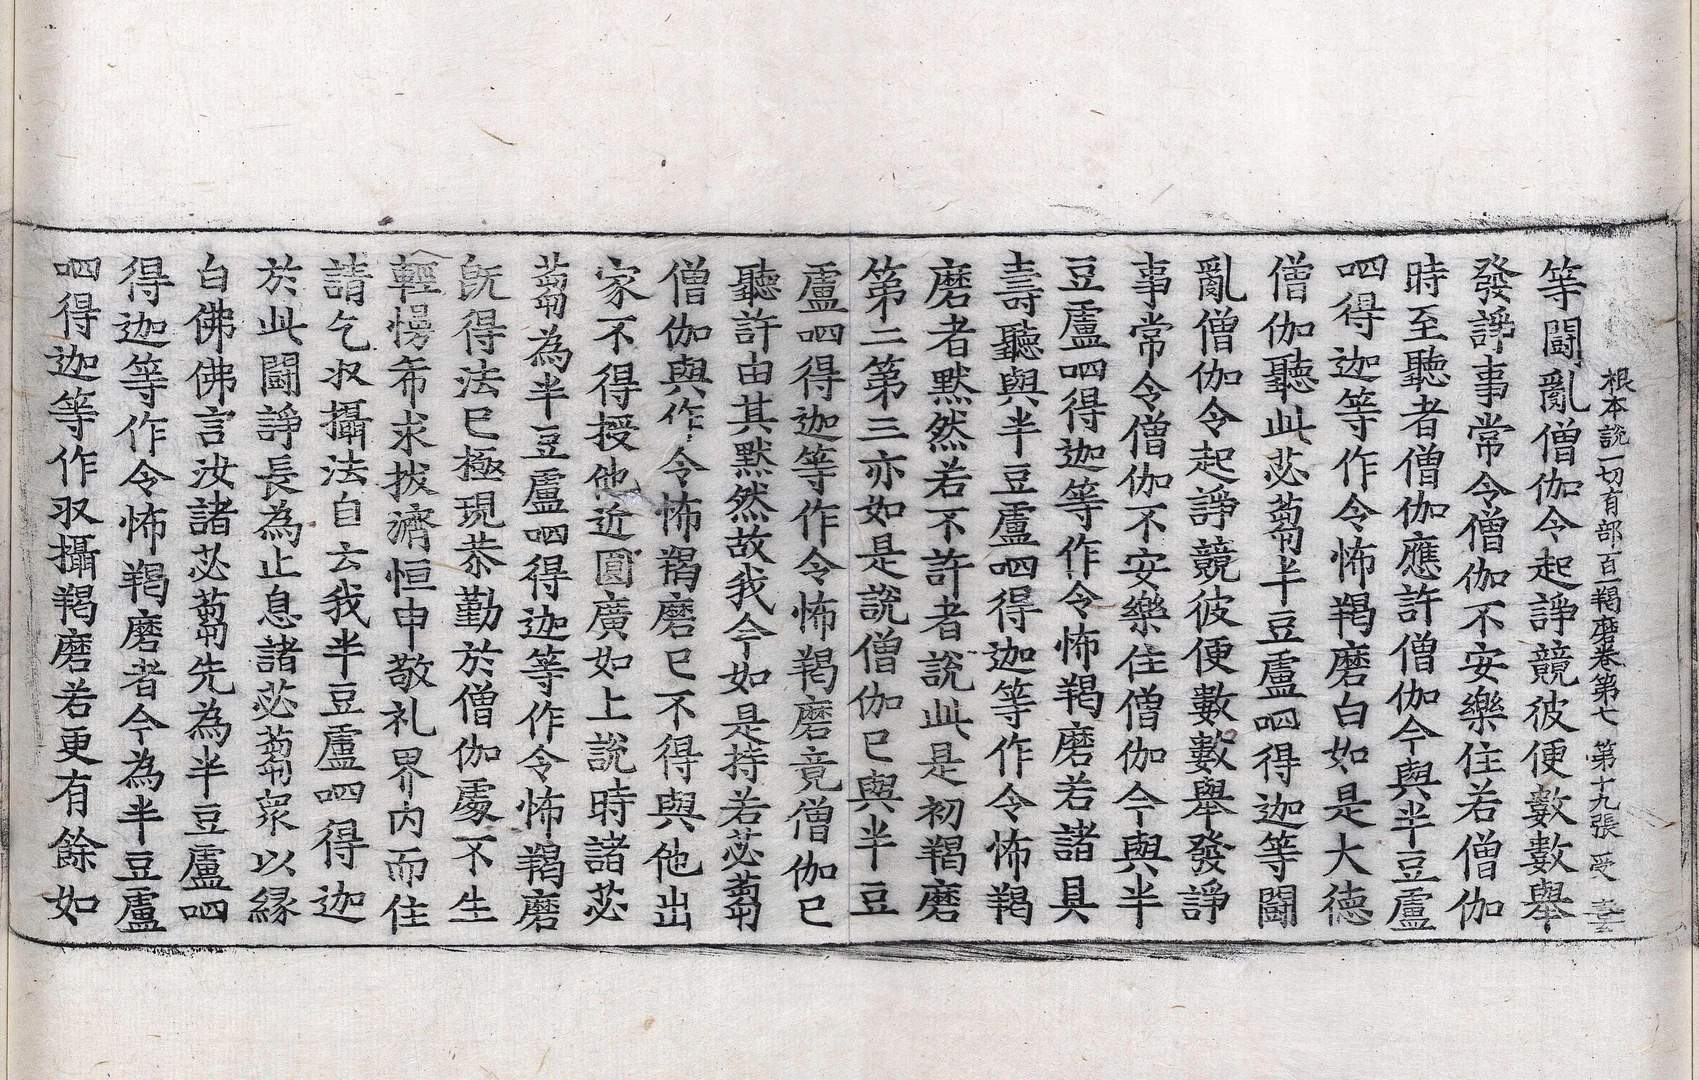 根本說一切有部百一羯磨卷第七 第十九張 受
等鬪亂僧伽令起諍競彼便數數舉
發諍事常令僧伽不安樂住若僧伽
時至聽者僧伽應許僧伽今與半豆盧
呬得迦等作令怖羯磨白如是大德
僧伽聽此苾蒭半豆盧呬得迦等鬪
亂僧伽令起諍競彼便數數舉發諍
事常令僧伽不安樂住僧伽今與半
豆盧呬得迦等作令怖羯磨若諸具
壽聽與半豆盧呬得迦等作令怖羯
磨者默然若不許者說此是初羯磨
第二第三亦如是說僧伽已與半豆
盧呬得迦等作令怖羯磨竟僧伽已
聽許由其默然故我今如是持若苾蒭
僧伽與作令怖羯磨已不得與他出
家不得授他近圓廣如上說時諸苾
蒭為半豆盧呬得迦等作令怖羯磨
旣得法已極現恭勤於僧伽處不生
輕慢希求拔濟恒申敬礼界內而住
請乞収攝法自云我半豆盧呬得迦
於此鬪諍長為止息諸苾蒭衆以縁
白佛佛言汝諸苾蒭先為半豆盧呬
得迦等作令怖羯磨者今為半豆盧
呬得迦等作収攝羯磨若更有餘如